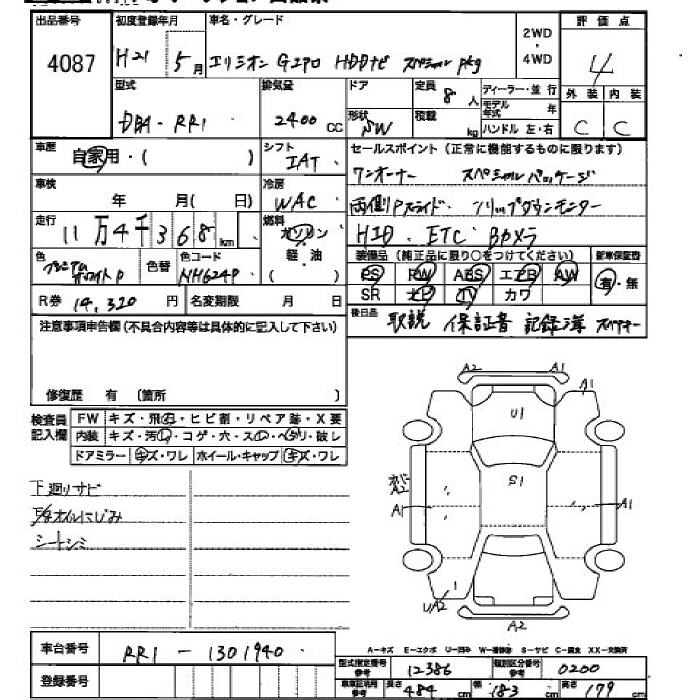 出品番号 初度登録年月 車名・グレード 2WD・4WD 評価点
4087 H21 5月 エリシオン Gエアロ HDDナビ スペシャルpkg 4
型式 排気量 ドア 定員 8人 ディーラー・並行 外装 内装
DBA-RR1 2400CC 形状 SW 積載 kg モデル年式 年 ハンドル 左・右 C C
車歴 自家用・( ) シフト IAT セールスポイント(正常に機能するものに限ります)
車検 年 月( 日) 冷房 WAC ワンオーナー スペシャルパッケージ
走行 11万4千368km 燃料 ガソリン 両側Pスライド フリップダウンモニター
軽・油 HID ETC Bカメラ
色 プレミアムホワイトP 色替 色コード NH624P ( ) 装備品(純正品に限り○をつけてください) 新車保証書
PS PW ABS エアB AW 有・無
R券 14,320円 名変期限 月 日 SR ナビ TV カワ
注意事項申告欄(不具合内容等は具体的に記入して下さい) 後日品 取説 保証書 記録簿 スペアキー
修復歴 有 〔箇所 〕
検査員記入欄 FW キズ・飛石・ヒビ割・リペア跡・X要
内装 キズ・汚れ・コゲ・穴・スレ・ヘタリ・破レ
ドアミラー キズ・ワレ ホイール・キャップ キズ・ワレ
下廻りサビ
オイルにじみ
シートシミ
A2 A1
A1
U1
S1
A2
A1 A1
UA2
A2
A-キズ E-エクボ U-凹み W-補修跡 S-サビ C-腐食 XX-交換済
車台番号 RR1-1301940
登録番号
型式指定番号 参考 12386 類別区分番号 参考 0200
車車証記載 参考 長さ 484cm 幅 183cm 高さ 179cm